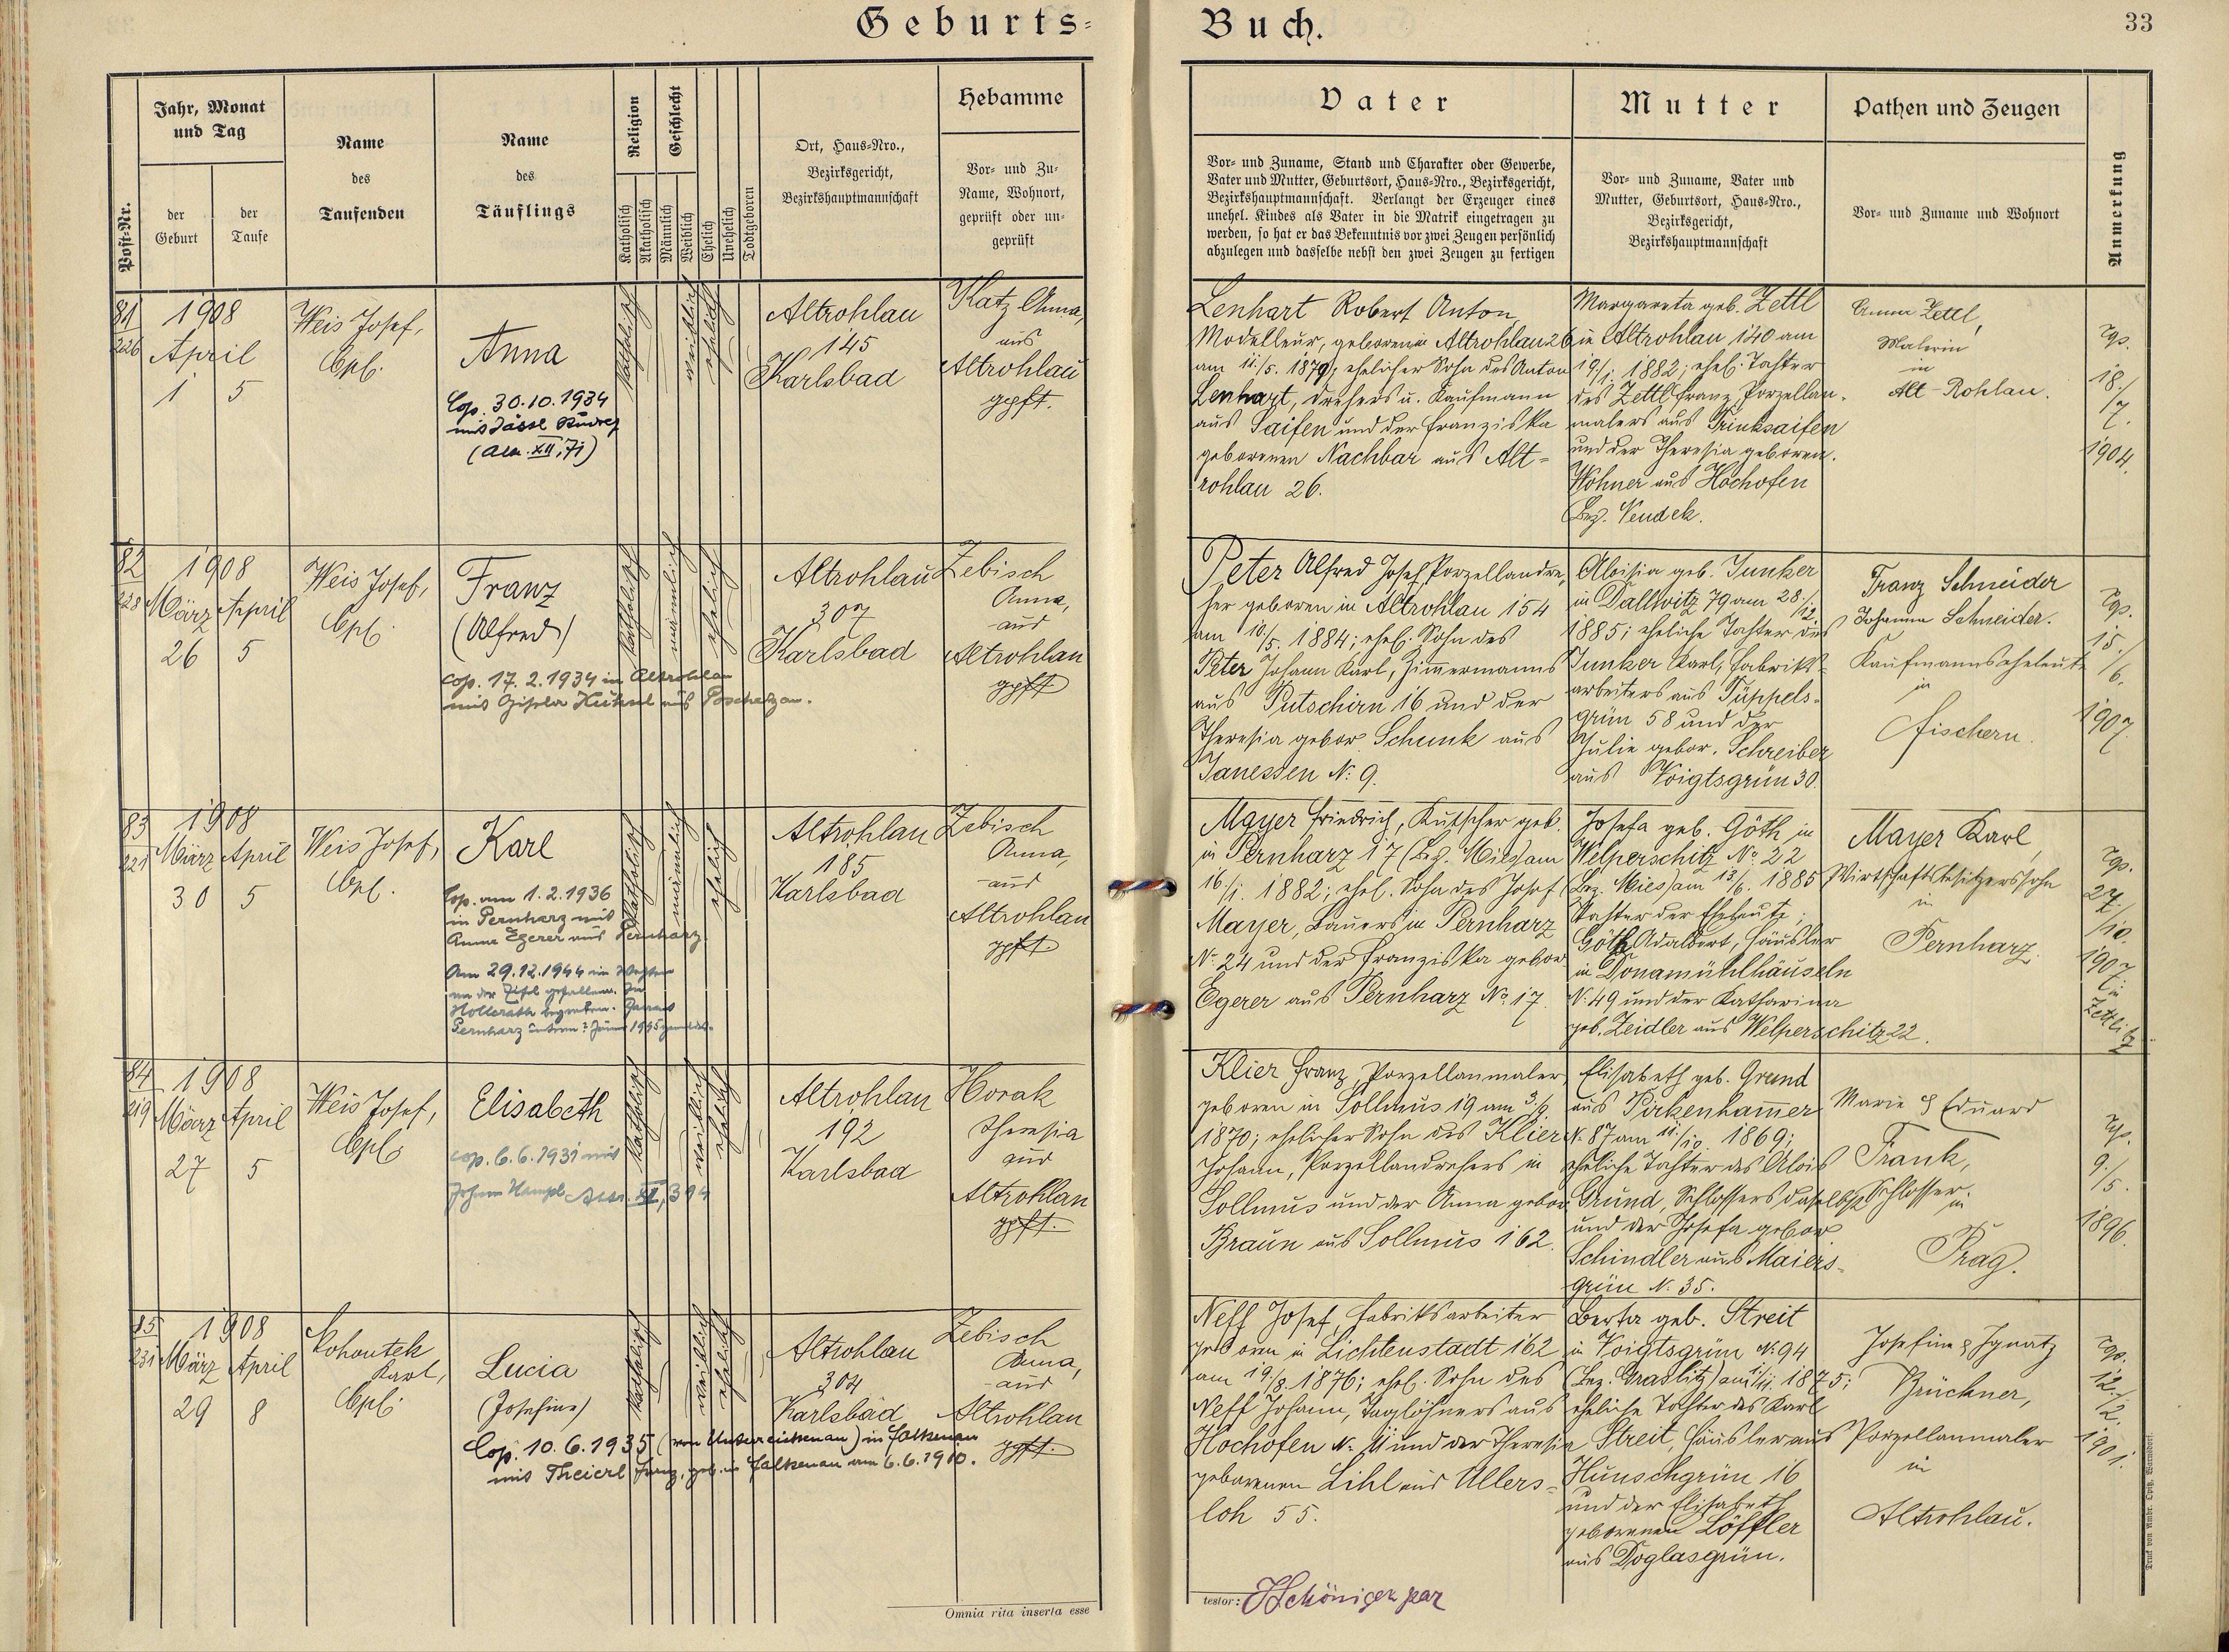 Geburts=
Buch.
33
Post-Nr.
Jahr, Monat
und Tag
der
Geburt
der
Taufe
Name
des
Taufenden
Name
des
Täuflings
Religion
Katholisch
Akatholisch
Geschlecht
Männlich
Weiblich
Ehelich
Unehelich
Todtgeboren
Ort, Haus=Nro.,
Bezirksgericht,
Bezirkshauptmannschaft
Hebamme
Vor= und Zu=
Name, Wohnort,
geprüft oder un=
geprüft
Vater
Vor= und Zuname, Stand und Charakter oder Gewerbe,
Vater und Mutter, Geburtsort, Haus=Nro., Bezirksgericht,
Bezirkshauptmannschaft. Verlangt der Erzeuger eines
unehel. Kindes als Vater in die Matrik eingetragen zu
werden, so hat er das Bekenntnis vor zwei Zeugen persönlich
abzulegen und dasselbe nebst den zwei Zeugen zu fertigen
Mutter
Vor= und Zuname, Vater und
Mutter, Geburtsort, Haus=Nro.,
Bezirksgericht,
Bezirkshauptmannschaft
Pathen und Zeugen
Vor= und Zuname und Wohnort
Anmerkung
81
226
1908
April
1 5
Weis Josef,
Cpl.
Anna
Cop. 30.10.1934
mit Jässl Rudolf
(Alr. XII, 71)
katholisch
weiblich
ehelich
Altrohlau
145
Karlsbad
Katz Anna,
aus
Altrohlau
gepft.
Lenhart Robert Anton,
Modelleur, geboren in Altrohlau 26
am 12./5. 1879; ehelicher Sohn des Anton
Lenhart, Drehers u. Kaufmann
aus Saifen und der Franziska
geborenen Nachbar aus Alt=
rohlau 26.
Margareta geb. Zettl
in Altrohlau 140 am
19./1. 1882; ehel. Tochter
des Zettl Franz, Porzellan=
malers aus Trinksaifen
und der Theresia geboren.
Wohner aus Hochofen
Bez. Neudek.
Anna Zettl,
Malerin
in
Alt-Rohlau.
18./
7.
1904.
82
228
1908
März April
26 5
Weis Josef,
Cpl.
Franz
(Alfred)
cop. 17. 2. 1934 in Altrohlau
mit Gisela Kühnl aus Poschetzau.
katholisch
männlich
ehelich
Altrohlau
307
Karlsbad
Zebisch
Anna,
aus
Altrohlau
gepft.
Peter Alfred Josef, Porzellandre=
her geboren in Altrohlau 154
am 10./5. 1884; ehel. Sohn des
Peter Johann Karl, Zimmermanns
aus Putschirn 16 und der
Theresia gebor. Schunk aus
Janessen N: 9.
Aloisia geb. Junker
in Dallwitz 79 am 28./12.
1885; eheliche Tochter des
Junker Karl, Fabriks=
arbeiters aus Tüppels=
grün 58 und der
Julie gebor. Schreiber
aus Voigtsgrün 30.
Franz Schneider
Johanna Schneider.
Kaufmannseheleute
in
Fischern.
15./
6.
1907.
83
221
1908
März April
30 5
Weis Josef,
Cpl.
Karl
Cop. am 1. 2. 1936
in Pernharz mit
Anna Egerer aus Pernharz
Am 29.12.1944 im Westen
an der Eifel gefallen. In
Hollerath begraben.
katholisch
männlich
ehelich
Altrohlau
185
Karlsbad
Zebisch
Anna,
aus
Altrohlau
gepft.
Mayer Friedrich, Kutscher geb.
in Pernharz 17 (Bez. Mies) am
16./1. 1882; ehel. Sohn des Josef
Mayer, Bauers in Pernharz
N: 24 und der Franziska gebor.
Egerer aus Pernharz No. 17.
Josefa geb. Göth in
Welperschitz No. 22
(Bez. Mies) am 13./6. 1885
Tochter der Eheleute:
Göth Adalbert, Häusler
in Donamühlhäuseln
N: 49 und der Katharina
geb. Zeidler aus Welperschitz 22.
Mayer Karl,
Wirtschaftsbesitzerssohn
in
Pernharz.
27./
10.
1907
in
Zettlitz
84
219
1908
März April
27 5
Weis Josef,
Cpl.
Elisabeth
cop. 6. 6. 1931 mit
Johann Hampl Altr. XI, 394
katholisch
weiblich
ehelich
Altrohlau
192
Karlsbad
Horak
Theresia
aus
Altrohlau
gepft.
Klier Franz, Porzellanmaler,
geboren in Sollmus 19 am 3./9.
1870; ehelicher Sohn des Klier
Johann, Porzellandrehers in
Sollmus und der Anna gebor.
Braun aus Sollmus 162.
Elisabeth geb. Grund
aus Pirkenhammer
N: 87 am 12./10. 1869;
eheliche Tochter des Alois
Grund, Schlossers daselbst
und der Josefa gebor
Schindler aus Maiers=
grün N: 35.
Marie & Eduard
Frank,
Schlosser
in
Prag.
9./
5.
1896.
85
231
1908
März April
29 8
Kohoutek
Karl,
Cpl.
Lucia
(Josefine)
Cop. 10. 6. 1935 (von Unterreichenau) in Falkenau
mit Theierl Franz, geb. in Falkenau am 6. 6. 1910.
katholisch
weiblich
ehelich
Altrohlau
304
Karlsbad
Zebisch
Anna,
aus
Altrohlau
gepft.
Neff Josef, Fabriksarbeiter
geboren in Lichtenstadt 162
am 19./8. 1876; ehel. Sohn des
Neff Johann, Taglöhners aus
Hochofen N: 11 und der Theresia
geborenen Lihl aus Ullers=
loh 55.
Berta geb. Streit
in Voigtsgrün N: 94
(Bez. Graslitz) am 11./11. 1875;
eheliche Tochter des Karl
Streit, Häusler aus
Hunschgrün 16
und der Elisabeth
geborenen Löffler
aus Doglasgrün.
Josefine & Ignatz
Brückner,
Porzellanmaler
in
Altrohlau.
12./
2.
1901.
Omnia rita inserta esse
testor:
Druck von Ambr. Opitz, Warnsdorf.